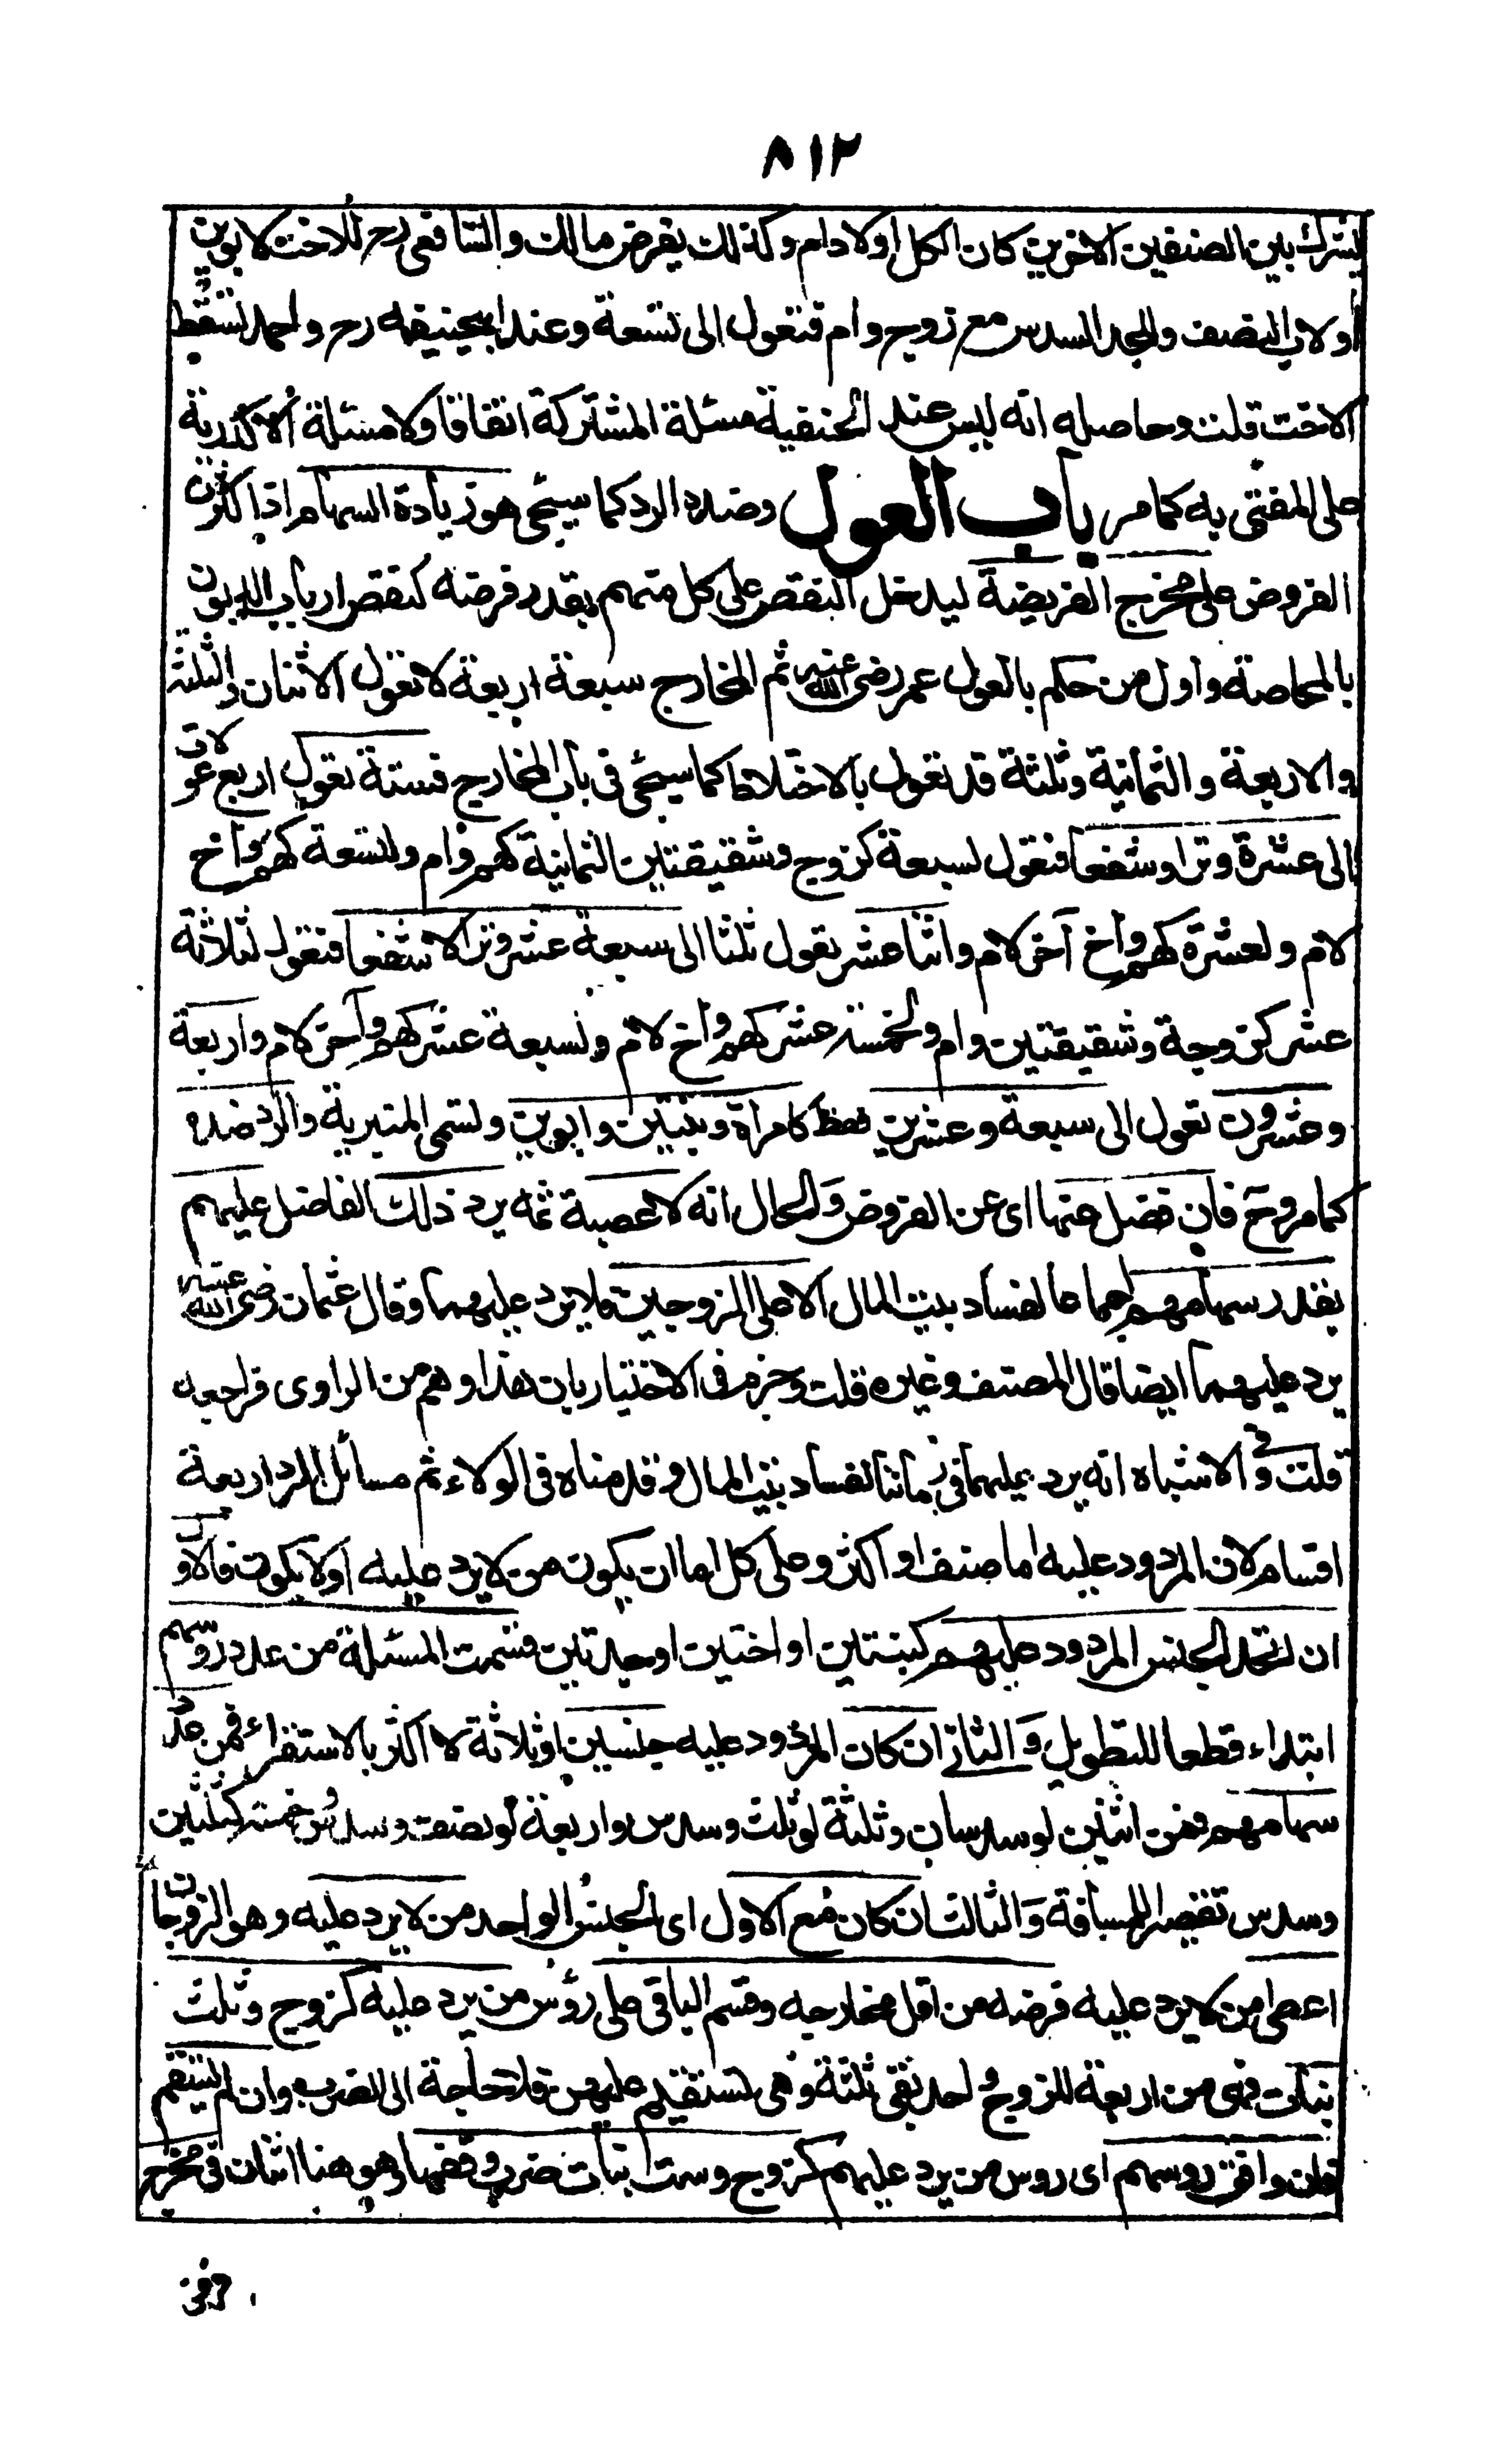 ٨١٢
يشرك بين الصنفين الاخرين كان الكل اولاد ام وكذلك يفرض مالك والشافعى رح للاخت لابوين
او لاب النصف والجد السدس مع زوج وام فتعول الى تسعة وعند ابيحنيفه رح واحمد تسقط
الاخت قلت وحاصله انه ليس عند الحنفية مسئلة المشتركة اتفاقا ولا مسئلة الاكدرية
على المفتى به كما مر باب العول وضده الرد كما سيجئ هو زيادة السهام اذا كثرت
الفروض على مخرج الفريضة ليدخل النقص على كل منهم بقدر فرضه كنقص ارباب الديون
بالمحاصة واول من حكم بالعول عمر رضى الله عنه ثم المخارج سبعة اربعة لا تعول الاثنان والثلثة
والاربعة والثمانية وثلثة قد تعول بالاختلاط كما سيجئ فى باب المخارج فستة تعول اربع عولات
الى عشرة وترا وشفعا فتعول لسبعة كزوج وشقيقتين الثمانية كهم وام ولتسعة كهم واخ
لام ولعشرة كهم واخ آخر لام واثنا عشر تعول ثلثا الى سبعة عشر وترا لا شفعا فتعول لثلاثة
عشر كزوجة وشقيقتين وام ولخمسة عشر كهم واخ لام ولسبعة عشر كهم وآخر لام واربعة
وعشرون تعول الى سبعة وعشرين فقط كامراة وبنتين وابوين وتسمى المنبرية والرد ضده
كما مر وح فان فضل عنها اى عن الفروض والحال انه لا عصبة ثمه يرد ذلك الفاضل عليهم
بقدر سهامهم اجماعا لفساد بيت المال الا على الزوجين فلا يرد عليهما وقال عثمان رضى الله عنه
يرد عليهما ايضا قال المصنف وغيره قلت وجزم فى الاختيار بان هذا وهم من الراوى فراجعه
قلت وفى الاشباه انه يرد عليهما فى زماننا لفساد بيت المال وقدمناه فى الولاء ثم مسائل الرد اربعة
اقسام لان المردود عليه اما صنف او اكثر وعلى كل اما ان يكون من لا يرد عليه او لا يكون فالاول
ان اتحد الجنس المردود عليهم كبنتين او اختين او جدتين قسمت المسئلة من عدد روسهم
ابتداء قطعا للتطويل والثانى ان كان المردود عليه جنسين او ثلاثة لا اكثر بالاستقراء فمن عدد
سهامهم فمن اثنين لو سدسان وثلثة لو ثلث وسدس واربعة لو نصف وسدس خمسة كثلثين
وسدس تقصيرا للمسافة والثالث ان كان مع الاول اى الجنس الواحد من لا يرد عليه وهو الزوجان
اعطى من لا يرد عليه فرضه من اقل مخارجه وقسم الباقى على رؤس من يرد عليه كزوج وثلث
بنات فهى من اربعة للزوج واحد بقى ثلثة وهى تستقيم عليهن فلا حاجة الى الضرب وان لم يستقم
فان وافق روسهم اى روس من يرد عليهم كزوج وست بنات ضرب وفقها وهو هنا اثنان فى مخرج